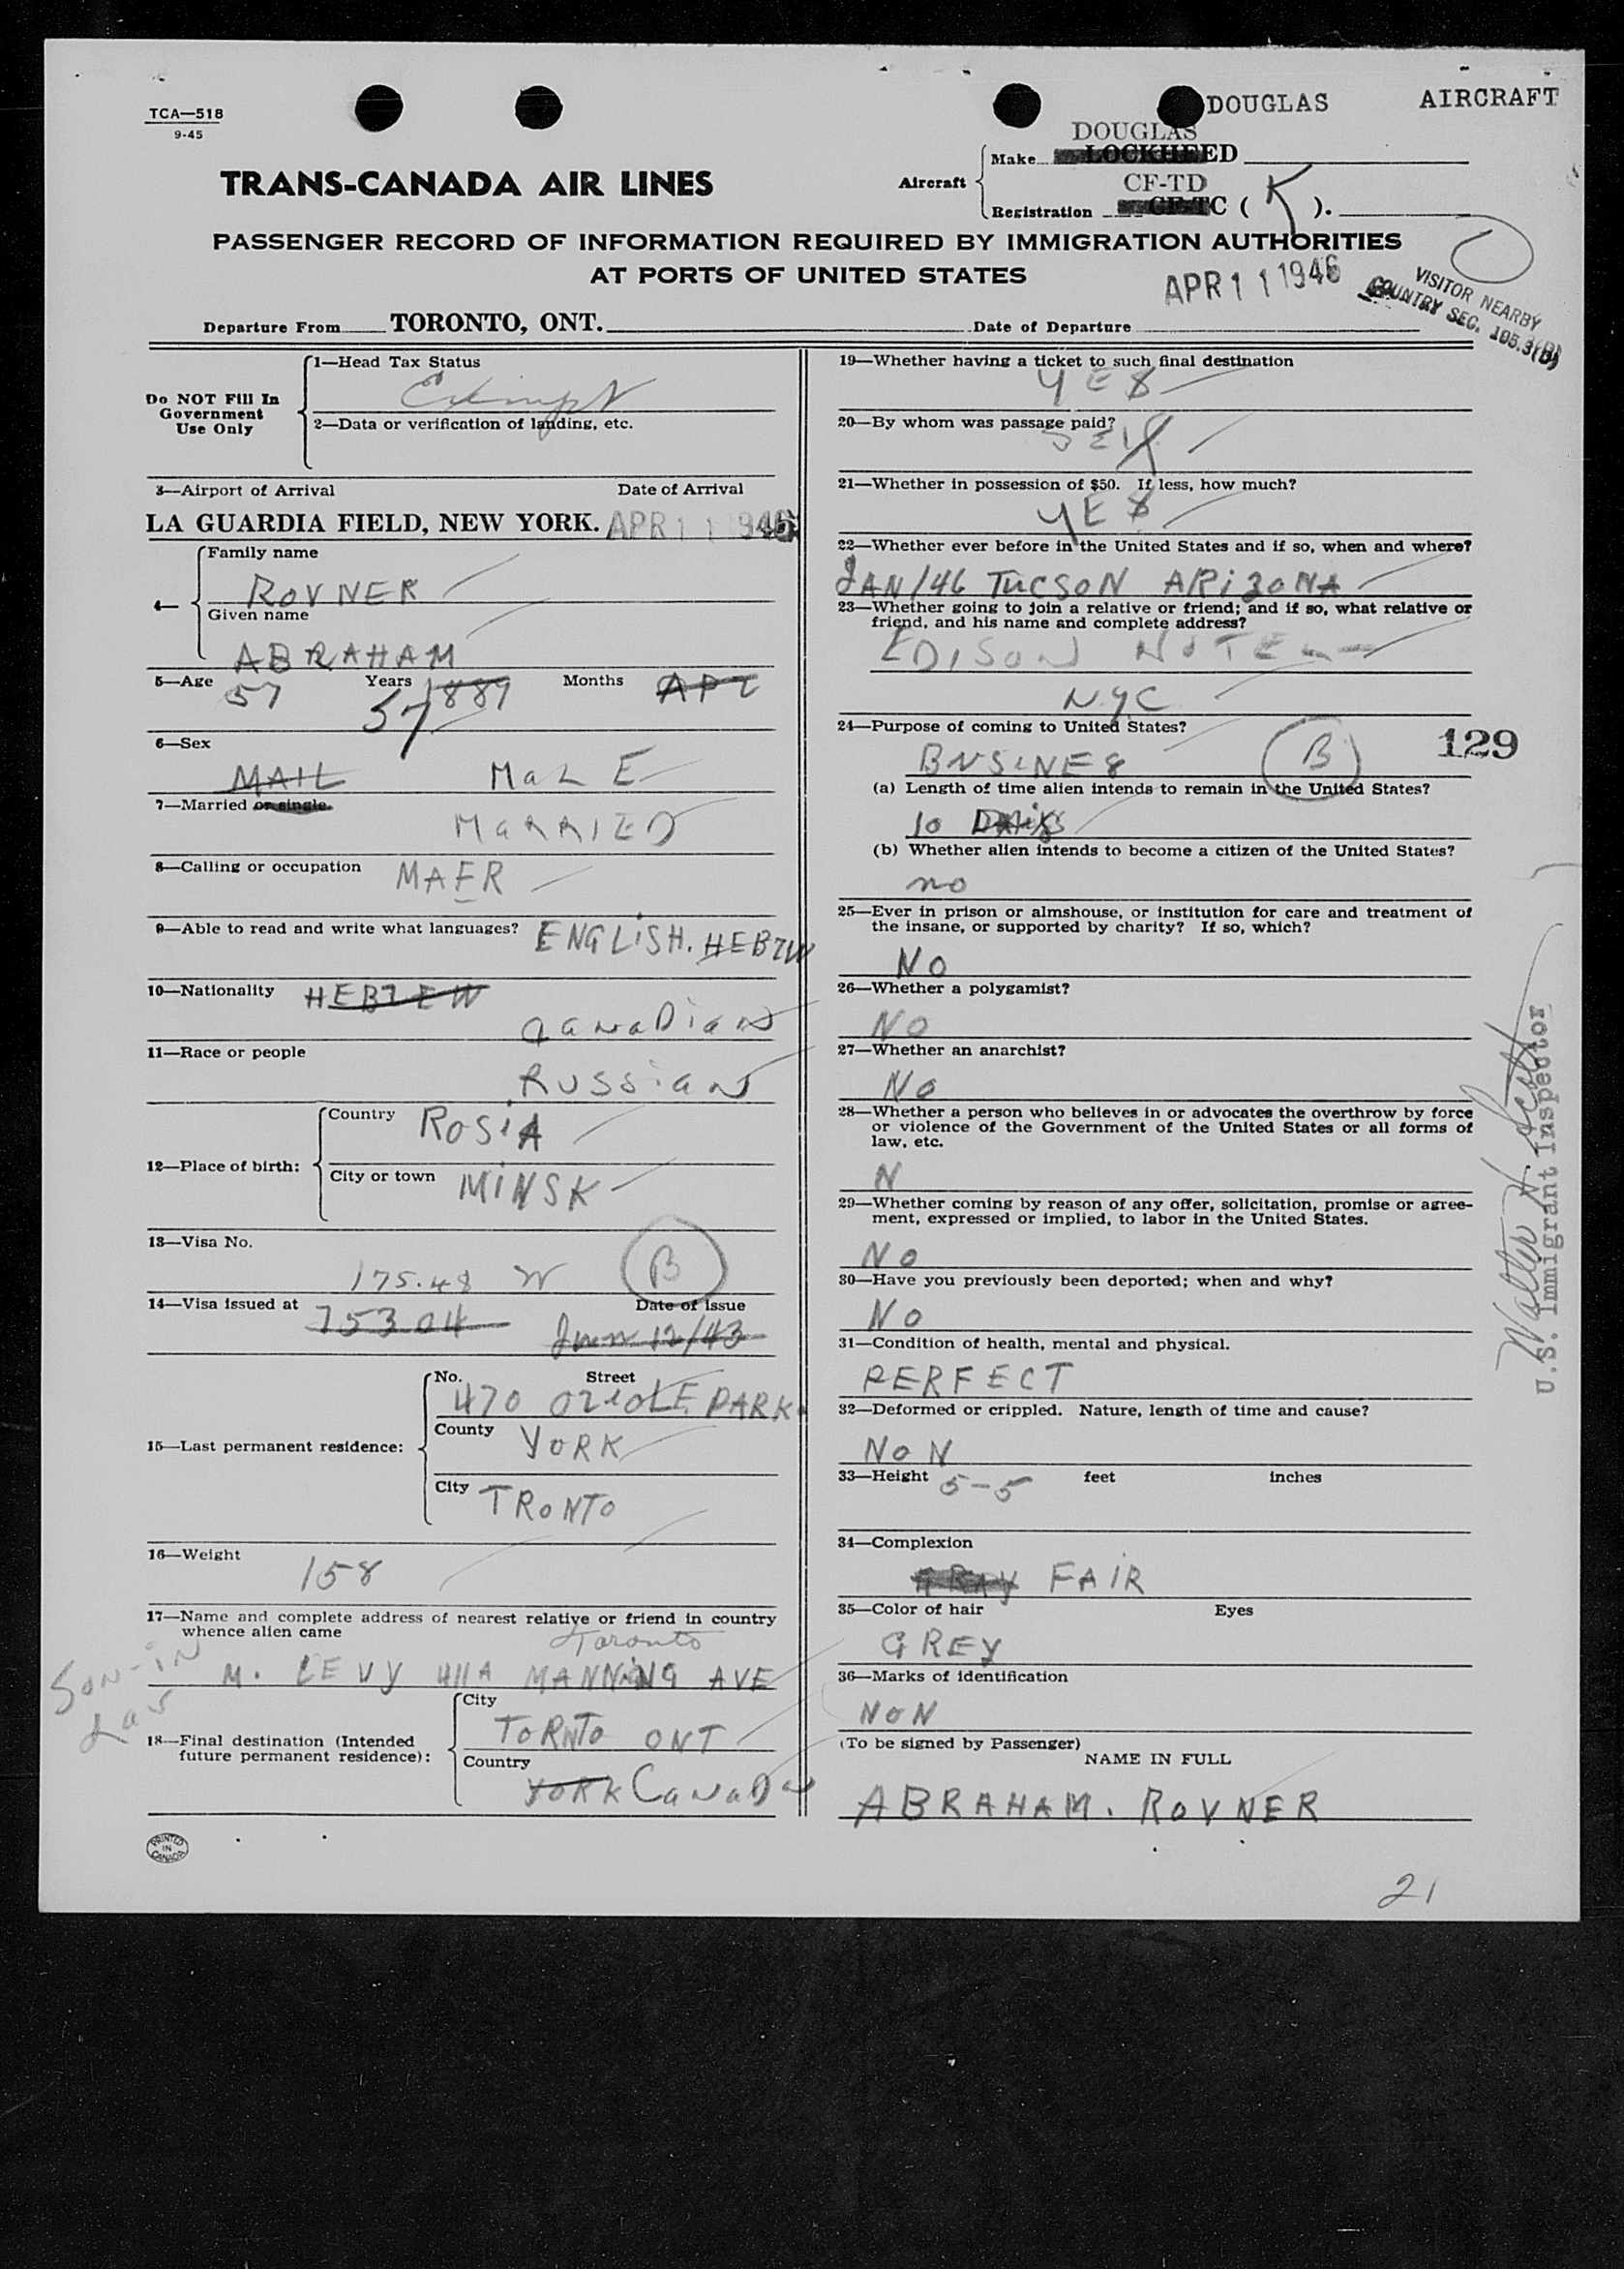 TCA—518
9-45
DOUGLAS AIRCRAFT
DOUGLAS
Make LOCKHEED
TRANS-CANADA AIR LINES
Aircraft
CF-TD
Registration CF-TC ( K ).
PASSENGER RECORD OF INFORMATION REQUIRED BY IMMIGRATION AUTHORITIES
AT PORTS OF UNITED STATES
APR 1 1 1946
VISITOR NEARBY
COUNTRY SEC. 105.3(B)
Departure From TORONTO, ONT. Date of Departure
Do NOT Fill In
Government
Use Only
1—Head Tax Status
Exempt
2—Data or verification of landing, etc.
3—Airport of Arrival Date of Arrival
LA GUARDIA FIELD, NEW YORK. APR 1 1 1946
4—
Family name
ROVNER
Given name
ABRAHAM
5—Age 57 Years 1889 Months APL
57
6—Sex
MAIL MaLE
7—Married or single.
MaRRIED
8—Calling or occupation MAER
9—Able to read and write what languages? ENGLiSH. HEBZW
10—Nationality HEBZEW
CanaDian
11—Race or people
RUSSian
12—Place of birth:
Country ROSiA
City or town MiNSK
13—Visa No.
175.48 W B
14—Visa issued at 75304 Date of issue
12/43
15—Last permanent residence:
No. Street
470 ORioLE PARK
County YORK
City TRONTO
16—Weight
158
17—Name and complete address of nearest relative or friend in country
whence alien came
Toronto
SON-IN
Law
M. LEVY 411A MANNiNG AVE
18—Final destination (Intended
future permanent residence):
City
TORNTO ONT
Country
YORK CaNaDa
PRINTED
IN
CANADA
19—Whether having a ticket to such final destination
YES
20—By whom was passage paid?
SELF
21—Whether in possession of $50. If less, how much?
YES
22—Whether ever before in the United States and if so, when and where?
JAN/46 TUCSON ARiZONA
23—Whether going to join a relative or friend; and if so, what relative or
friend, and his name and complete address?
EDISON HOTEL
NYC
24—Purpose of coming to United States?
BUSINES B
129
(a) Length of time alien intends to remain in the United States?
10 DAiYS
(b) Whether alien intends to become a citizen of the United States?
no
25—Ever in prison or almshouse, or institution for care and treatment of
the insane, or supported by charity? If so, which?
NO
26—Whether a polygamist?
NO
27—Whether an anarchist?
NO
28—Whether a person who believes in or advocates the overthrow by force
or violence of the Government of the United States or all forms of
law, etc.
N
29—Whether coming by reason of any offer, solicitation, promise or agree-
ment, expressed or implied, to labor in the United States.
NO
30—Have you previously been deported; when and why?
NO
31—Condition of health, mental and physical.
PERFECT
32—Deformed or crippled. Nature, length of time and cause?
NON
33—Height 5-5 feet inches
34—Complexion
GRAY FAIR
35—Color of hair Eyes
GREY
36—Marks of identification
NON
(To be signed by Passenger)
NAME IN FULL
ABRAHAM. ROVNER
Walter H.
U.S. Immigrant Inspector
21